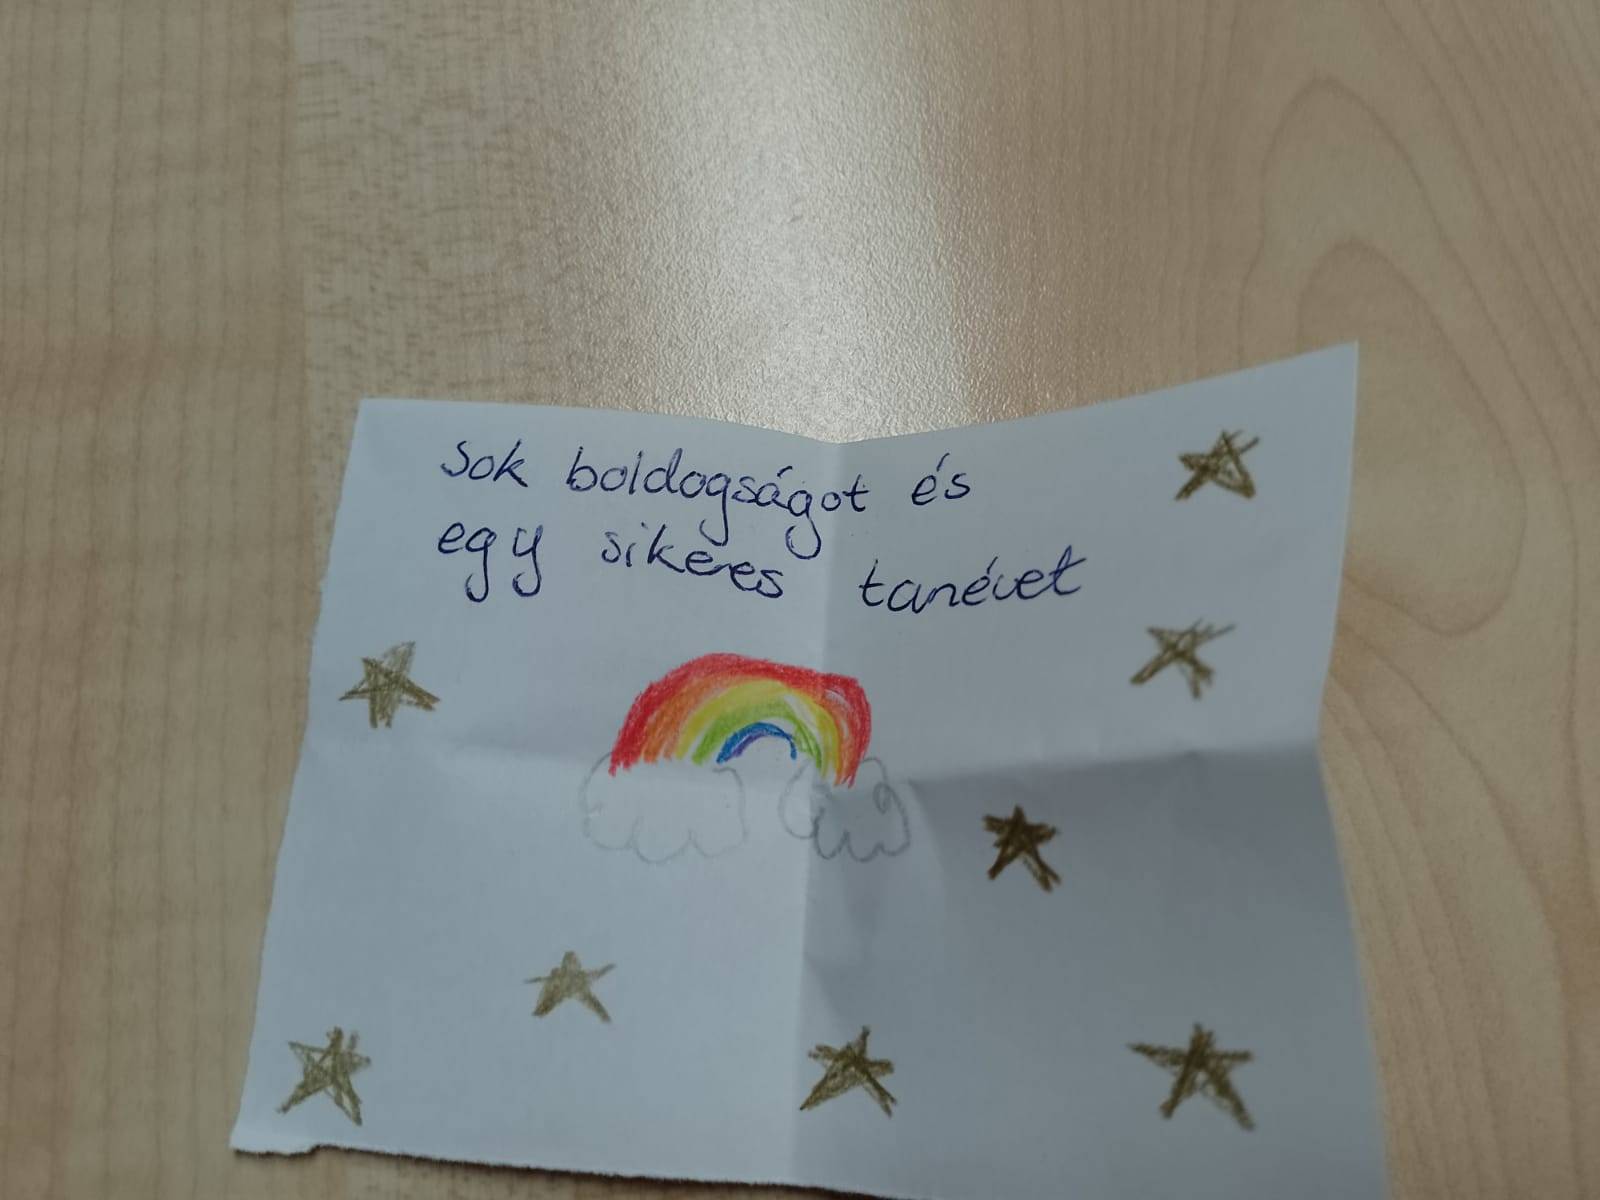 Sok boldogságot és
egy sikeres tanévet